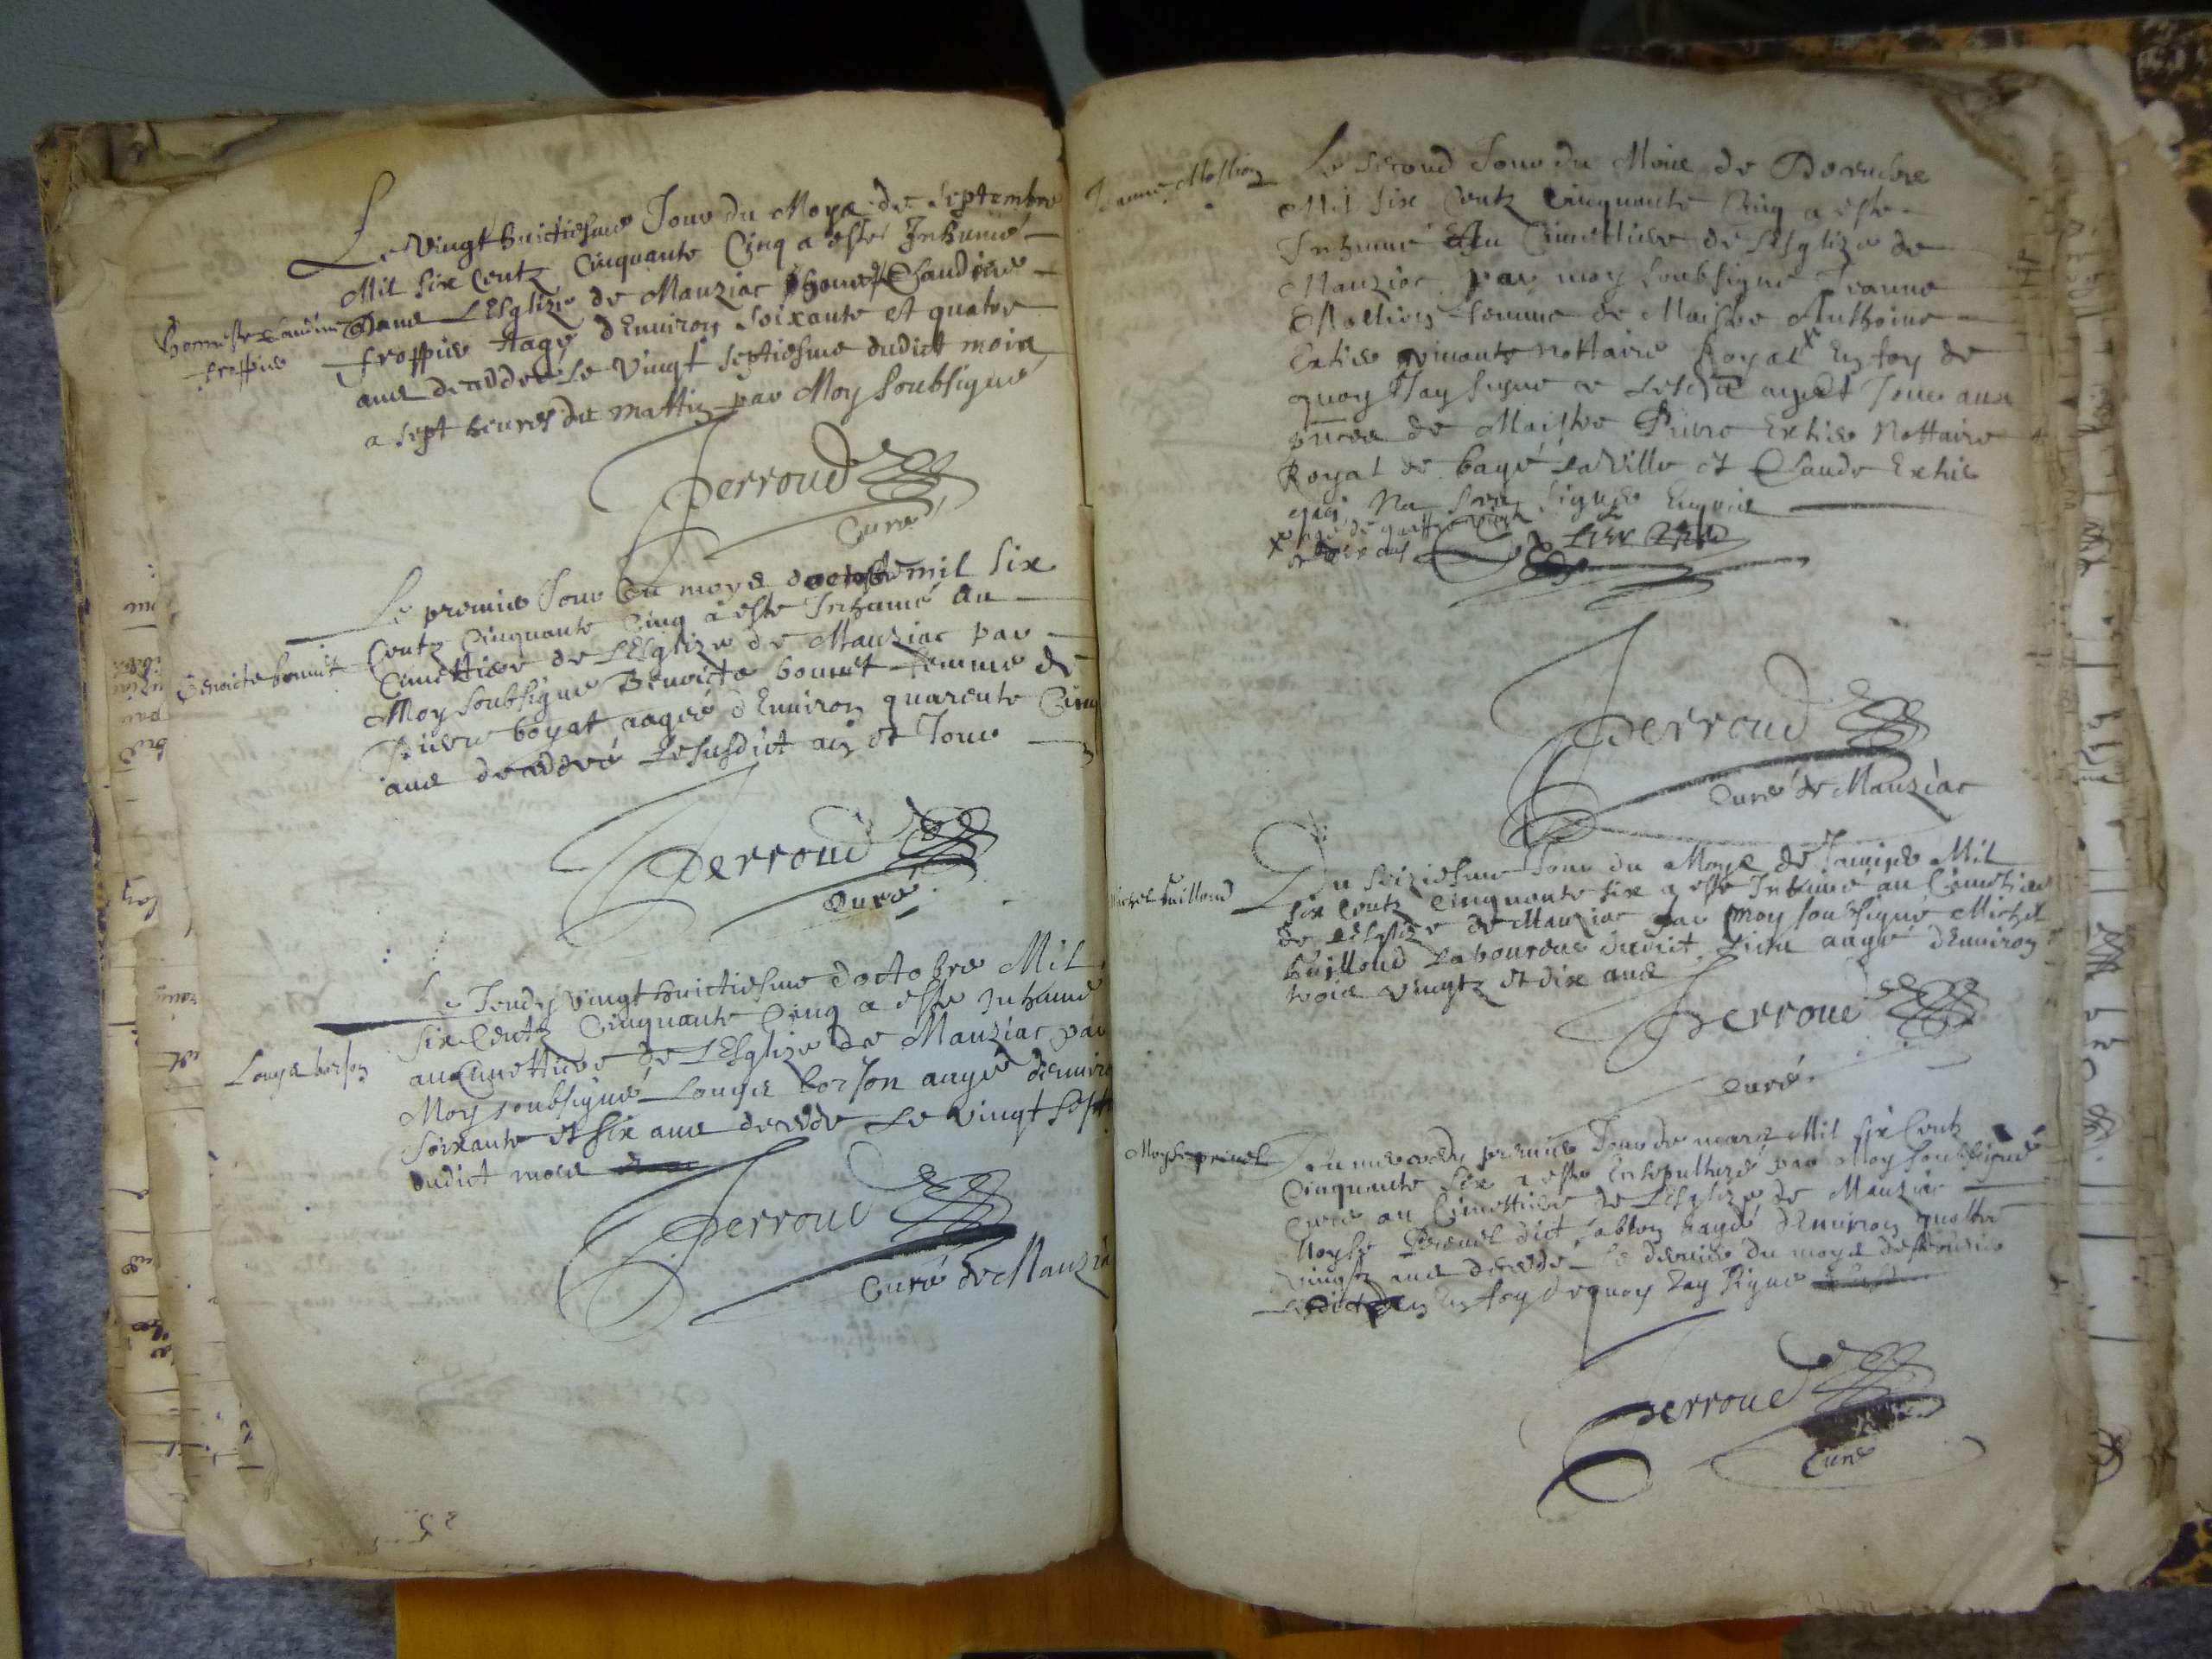 Le Vingt huictiesme Jour du Moys de Septembre
Mil Six Centz Cinquante Cinq a este Inhumé
Honneste Claudine
froppier
Dans LEsglize de Mauziac honeste Claudine
froppier Aagé dEnviron Soixante et quatre
ans decedde Le Vingt septiesme dudict mois
a sept heures du mattin par Moy Soubsigné
Perroud
Curé
Le premier Jour du moys doctobre mil Six
Centz Cinquante Cinq a este Inhumé au
Benoiste bonnet
Cimettiere de LEsglize de Mauziac par
Moy Soubsigné Benoiste bonnet femme de
Pierre boyat aagéé dEnviron quarente Cinq
ans deceddéé Le susdict an et Jour
Perroud
Curé
Le Jeudy Vingt huictiesme doctobre Mil
Six Centz Cinquante Cinq a este Inhumé
au Cimettiere de LEsglize de Mauziac par
Louys borson
Moy soubsigné Louys borson aagé denviro
Soixante et six ans decedde Le vingt sept
dudict mois
Perroud
Curé de Mauzia
Jeanne
Le second Jour du Mois de Decembre
Mil Six Centz Cinquante Cinq a este
Inhumé Au Cimettiere de LEsglize de
Mauziac par moy soubsigné Jeanne
femme de Maistre Anthoine
nottaire Royal x En foy de
quoy Jay signé Jour
de Maistre Pierre nottaire
Royal de bagé La Ville et Claude
qui Na signer Enquis
x de quattre vingt
Perroud
Curé de Mauziac
Michel Guilloud
Du seiziesme Jour du Moys de Janvier Mil
Six Centz Cinquante six a este Inhumé au Cimettiere
de LEsglize de Mauziac par moy soubsigné Michel
Guilloud Laboureur dudict Lieu aagé dEnviron
trois vingtz et dix ans
Perroud
Curé
Moyse
Du mercredy premier Jour de mars Mil six Centz
Cinquante six a este Ensepulturé par Moy soubsigné
Curé au Cimettiere de LEsglize de Mauziac
Moyse dict Sablon aagé dEnviron quattre
vingtz ans deceddé Le dernier du moys de febvrier
En foy dequoy Jay signé
Perroud
Curé